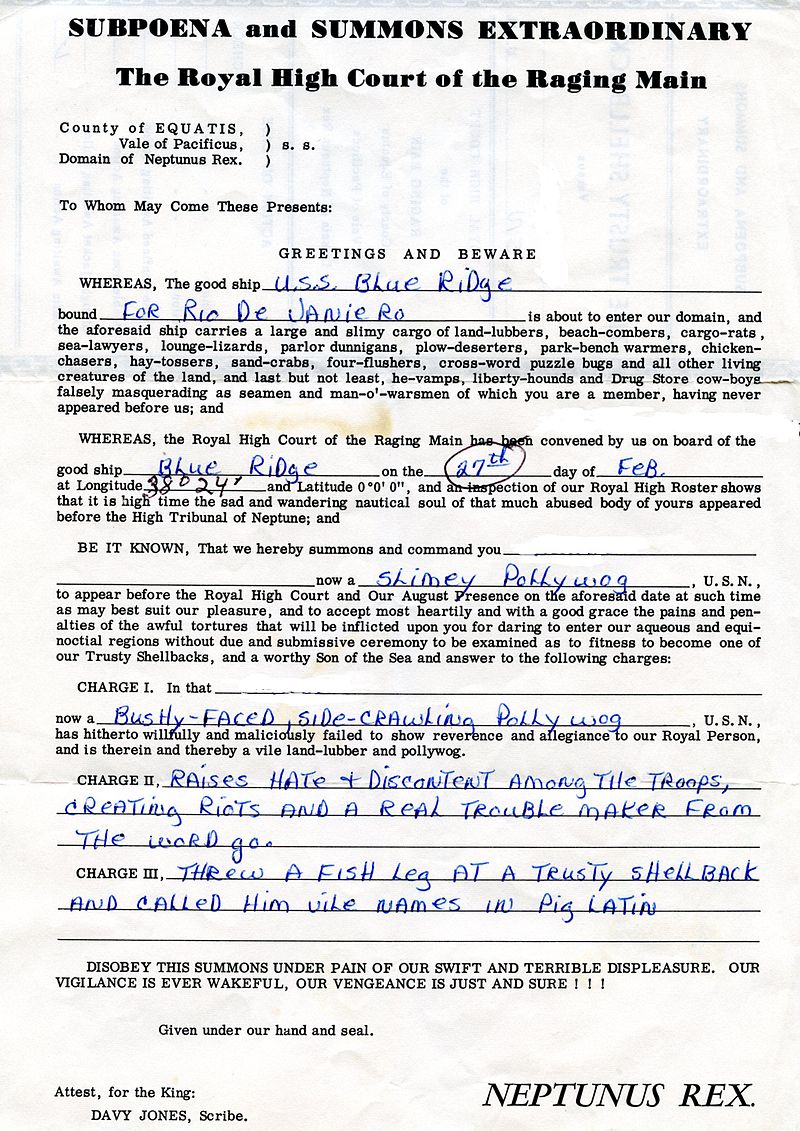 SUBPOENA and SUMMONS EXTRAORDINARY
The Royal High Court of the Raging Main
County of EQUATIS, )
Vale of Pacificus, ) s. s.
Domain of Neptunus Rex. )
To Whom May Come These Presents:
GREETINGS AND BEWARE
WHEREAS, The good ship U.S.S. Blue Ridge
bound FOR Rio De JANieRo is about to enter our domain, and
the aforesaid ship carries a large and slimy cargo of land-lubbers, beach-combers, cargo-rats,
sea-lawyers, lounge-lizards, parlor dunnigans, plow-deserters, park-bench warmers, chicken-
chasers, hay-tossers, sand-crabs, four-flushers, cross-word puzzle bugs and all other living
creatures of the land, and last but not least, he-vamps, liberty-hounds and Drug Store cow-boys
falsely masquerading as seamen and man-o'-warsmen of which you are a member, having never
appeared before us; and
WHEREAS, the Royal High Court of the Raging Main has been convened by us on board of the
good ship Blue Ridge on the 27th day of FeB.
at Longitude 38° 24' and Latitude 0°0' 0", and an inspection of our Royal High Roster shows
that it is high time the sad and wandering nautical soul of that much abused body of yours appeared
before the High Tribunal of Neptune; and
BE IT KNOWN, That we hereby summons and command you
now a SLimey PoLLywog, U.S.N.,
to appear before the Royal High Court and Our August Presence on the aforesaid date at such time
as may best suit our pleasure, and to accept most heartily and with a good grace the pains and pen-
alties of the awful tortures that will be inflicted upon you for daring to enter our aqueous and equi-
noctial regions without due and submissive ceremony to be examined as to fitness to become one of
our Trusty Shellbacks, and a worthy Son of the Sea and answer to the following charges:
CHARGE I. In that
now a BusHy-FACED, SIDE-CRAWLing PoLLywog, U.S.N.,
has hitherto willfully and maliciously failed to show reverence and allegiance to our Royal Person,
and is therein and thereby a vile land-lubber and pollywog.
CHARGE II, RAISES HATE + DISCONTENT AMONG THE TROOPS,
CREATING RIOTS AND A REAL TROUBLE MAKER FROM
THE WORD go.
CHARGE III, THREW A FISH Leg AT A TRUSTY SHELLBACK
AND CALLED Him VILE NAMES IN Pig LATIN
DISOBEY THIS SUMMONS UNDER PAIN OF OUR SWIFT AND TERRIBLE DISPLEASURE. OUR
VIGILANCE IS EVER WAKEFUL, OUR VENGEANCE IS JUST AND SURE ! ! !
Given under our hand and seal.
Attest, for the King:
DAVY JONES, Scribe.
NEPTUNUS REX.